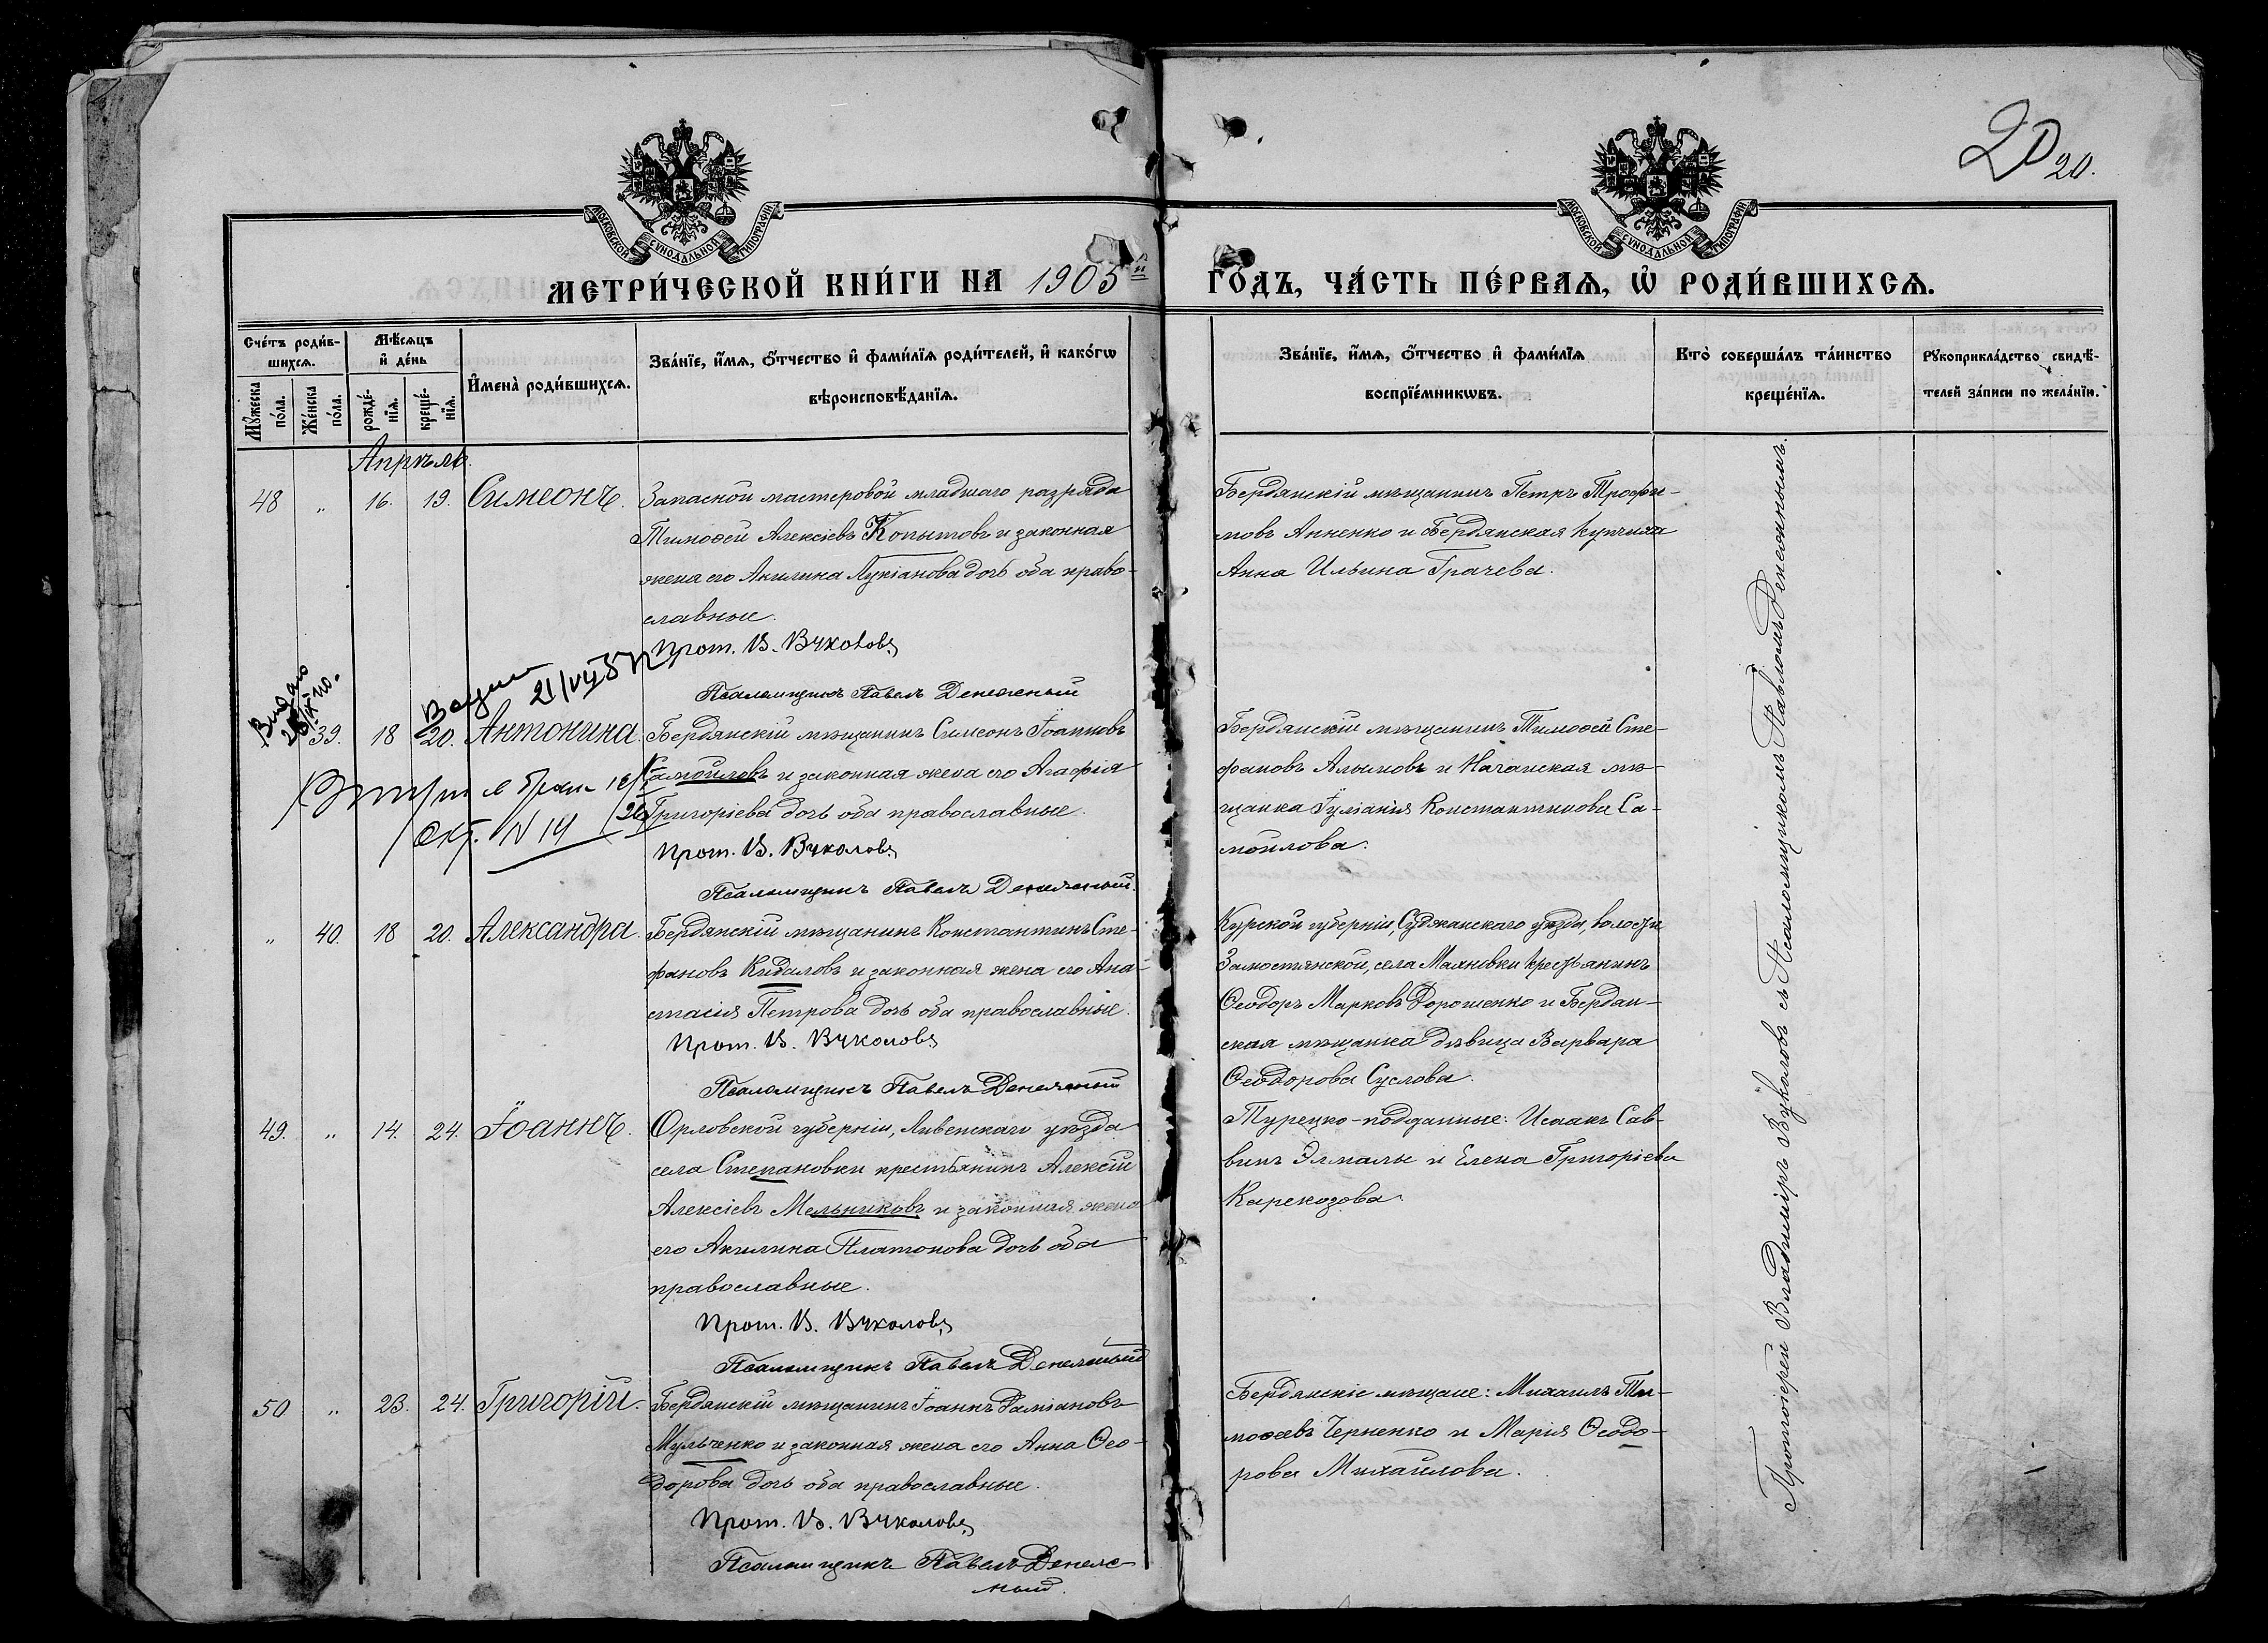 20
20.
МОСКОВСКОЙ СУНОДАЛЬНОЙ ТИПОГРАФІИ
МОСКОВСКОЙ СУНОДАЛЬНОЙ ТИПОГРАФІИ
МЕТРИ́ЧЕСКОЙ КНИ́ГИ НА 1905й ГО́ДЪ, ЧА́СТЬ ПЕ́РВАѦ, Ѡ҆ РОДИ́ВШИХСѦ.
Сче́тъ роди́в-
шихсѧ.
Мꙋ́жеска по́ла.
Же́нска по́ла.
Мѣ́сѧцъ и҆ де́нь
рожде́-
нїѧ.
креще́-
нїѧ.
И҆мена̀ роди́вшихсѧ.
Зва́нїе, и҆́мѧ, ѻ҆́тчество и҆ фами́лїѧ роди́телей, и҆ како́гѡ
вѣроисповѣ́данїѧ.
Зва́нїе, и҆́мѧ, ѻ҆́тчество и҆ фами́лїѧ
воспрїе́мникѡвъ.
Кто̀ соверша́лъ та́инство
креще́нїѧ.
Рꙋкоприкла́дство свидѣ́-
телей за́писи по жела́нїю.
Апрѣль.
48 „ 16. 19. Симеонъ. Запасной мастеровой младшаго разряда
Тимоѳей Алексіевъ Копытовъ и законная
жена его Акилина Лукіанова дочь оба право-
славные.
Прот. В. Вуколовъ
Псаломщикъ Павелъ Денежный
Бердянскій мѣщанинъ Петръ Трофи-
мовъ Анненко и Бердянская купчиха
Анна Ильина Грачева.
Выдано
21/VII
39. 18 20. Антонина. Бердянскій мѣщанинъ Симеонъ Іоанновъ
Самойловъ и законная жена его Агафія
Григоріева дочь оба православные.
Прот. В. Вуколовъ
Псаломщикъ Павелъ Денежный.
акт. N 14
Бердянскій мѣщанинъ Тимоѳей Сте-
фановъ Алымовъ и Ногайская мѣ-
щанка Іуліанія Константинова Са-
мойлова.
„ 40. 18 20. Александра. Бердянскій мѣщанинъ Константинъ Сте-
фановъ Кидаловъ и законная жена его Ана-
стасія Петрова дочь оба православные.
Прот. В. Вуколовъ
Псаломщикъ Павелъ Денежный
Курской губерніи, Суджанскаго уѣзда, волости
Замостянской, села Махновки крестьянинъ
Ѳеодоръ Марковъ Дорошенко и Бердян-
ская мѣщанка дѣвица Варвара
Ѳеодорова Суслова.
49. „ 14. 24. Іоаннъ. Орловской губерніи, Ливенскаго уѣзда
села Степановки крестьянинъ Алексій
Алексіевъ Мельниковъ и законная жена
его Акилина Платонова дочь оба
православные.
Прот. В. Вуколовъ
Псаломщикъ Павелъ Денежный
Турецко-подданные: Исаакъ Сав-
винъ Элмалы и Елена Григоріева
Карекозова.
50 „ 23. 24. Григорій. Бердянскій мѣщанинъ Іоаннъ Даміановъ
Мульченко и законная жена его Анна Ѳео-
дорова дочь оба православные.
Прот. В. Вуколовъ
Псаломщикъ Павелъ Денеж-
ный.
Бердянскіе мѣщане: Михаилъ Ти-
моѳеевъ Черненко и Марія Ѳеодо-
рова Михайлова.
Протоіерей Владиміръ Вуколовъ съ Псаломщикомъ Павломъ Денежнымъ.